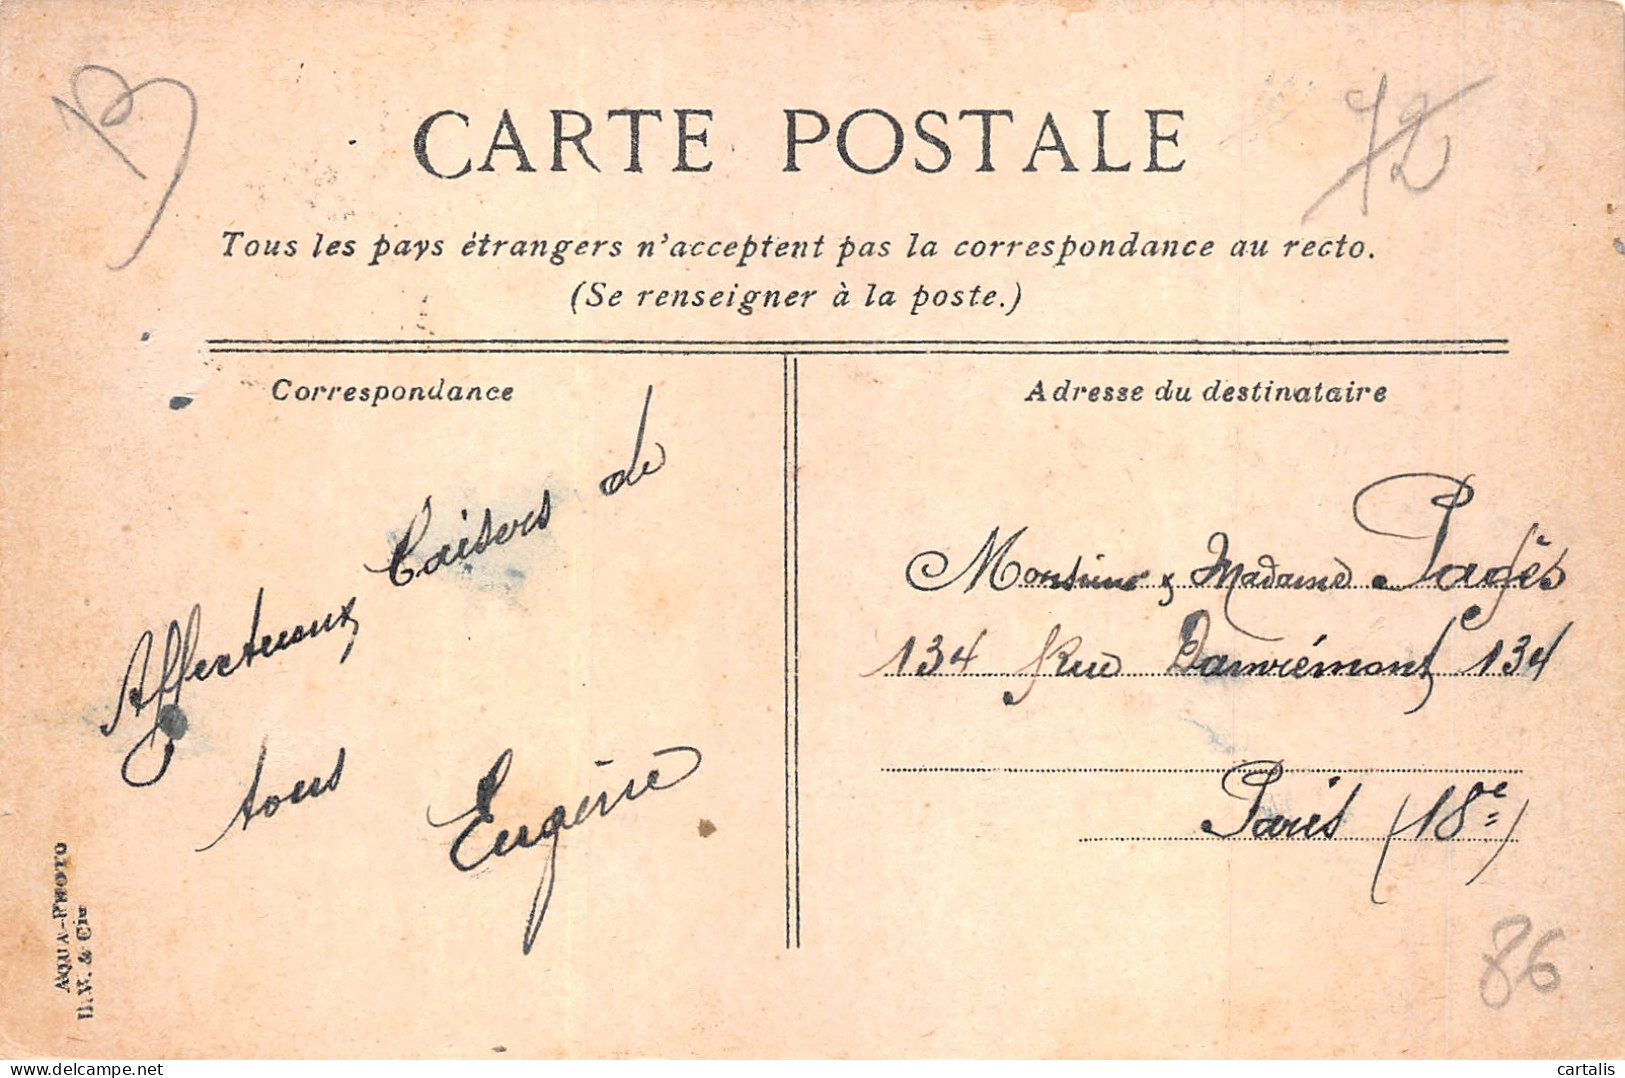 CARTE POSTALE
72
Tous les pays étrangers n'acceptent pas la correspondance au recto.
(Se renseigner à la poste.)
Correspondance
Affectueux baisers de
tous
Eugénie
Adresse du destinataire
Monsieur & Madame Pagès
134 Rue Damrémont 134
Paris (18e)
86
AQUA-PHOTO
& Cie
delcampe.net
cartalis